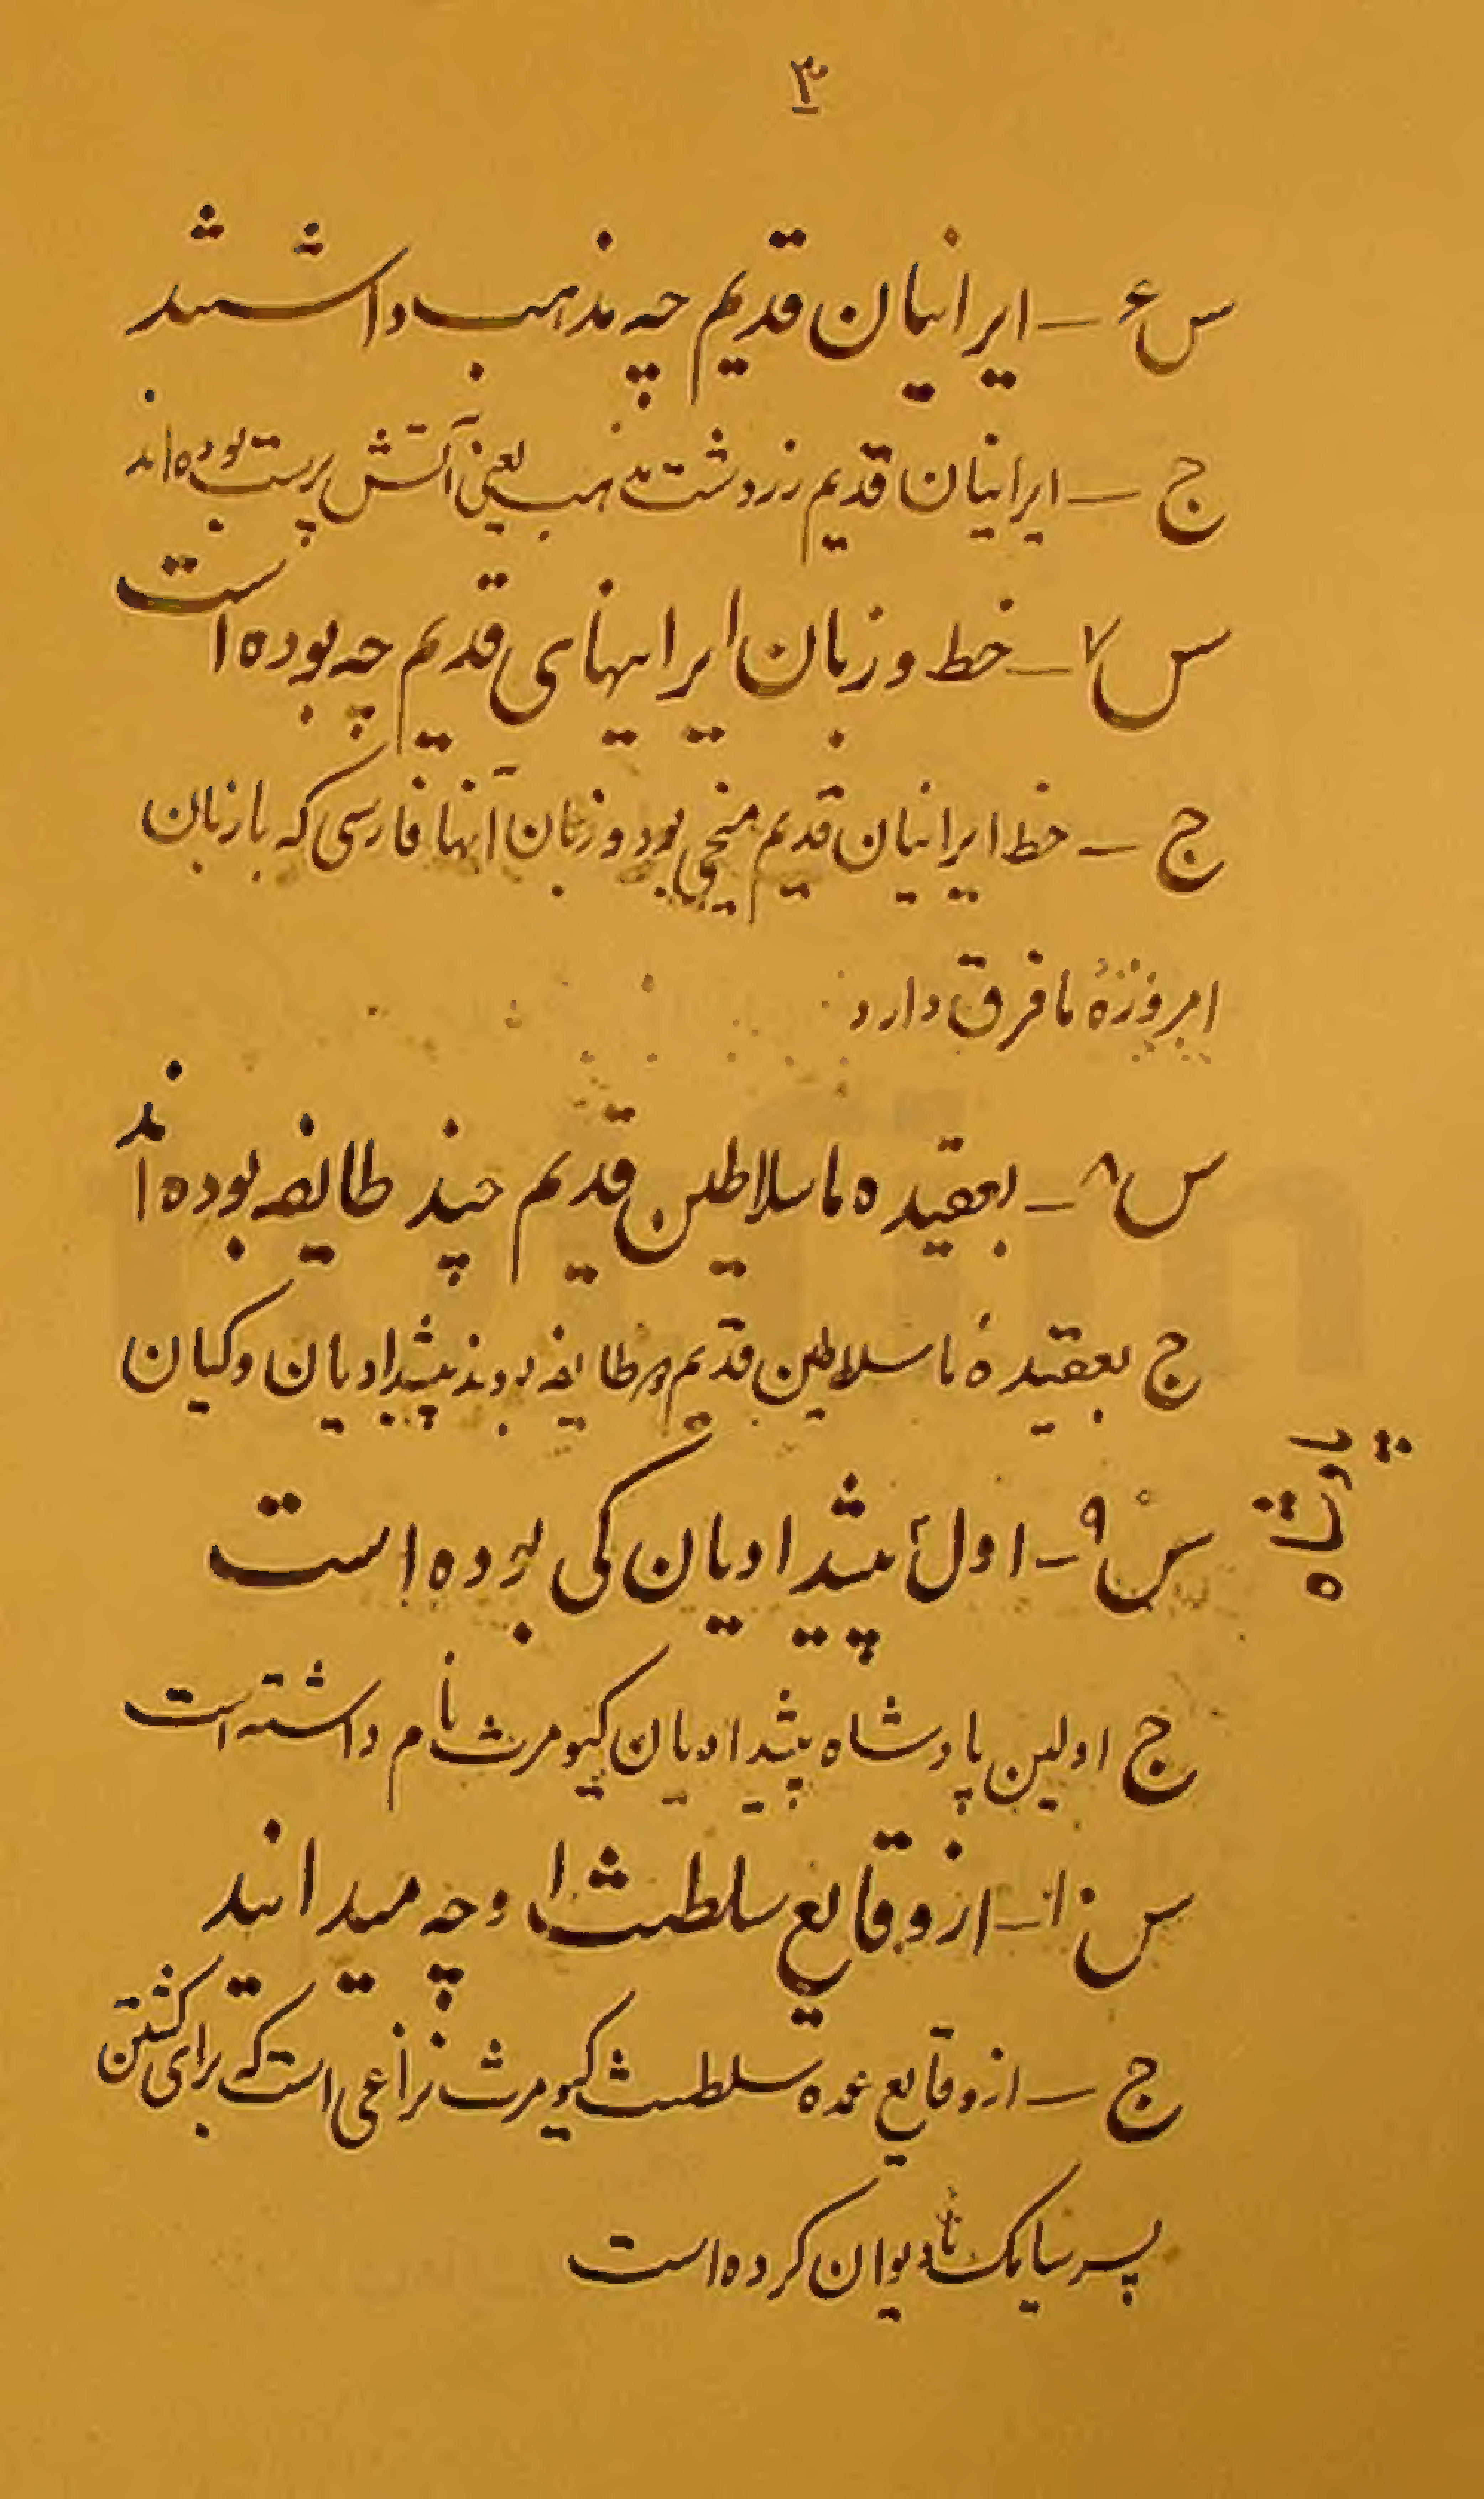 ۳
س ۶ – ایرانیان قدیم چه مذهب داشتند
ج – ایرانیان قدیم زردشت مذهب یعنی آتش پرست بوده‌اند
س ۷ – خط و زبان ایرانیهای قدیم چه بوده است
ج – خط ایرانیان قدیم میخی بود و زبان آنها فارسی که با زبان
امروزهٔ ما فرق دارد
س ۸ – بعقیده ما سلاطین قدیم چند طایفه بوده‌اند
ج بعقیدهٔ ما سلاطین قدیم طایفه بودند پیشدادیان و کیان
س ۹ – اول پیشدادیان کی بوده است
پادشاه
ج اولین پادشاه پیشدادیان کیومرث نام داشته است
س ۱۰ – از وقایع سلطنت او چه میدانید
ج – از وقایع عمده سلطنت کیومرث نزاعی است که برای کشتن
پسر سیامک با دیوان کرده است